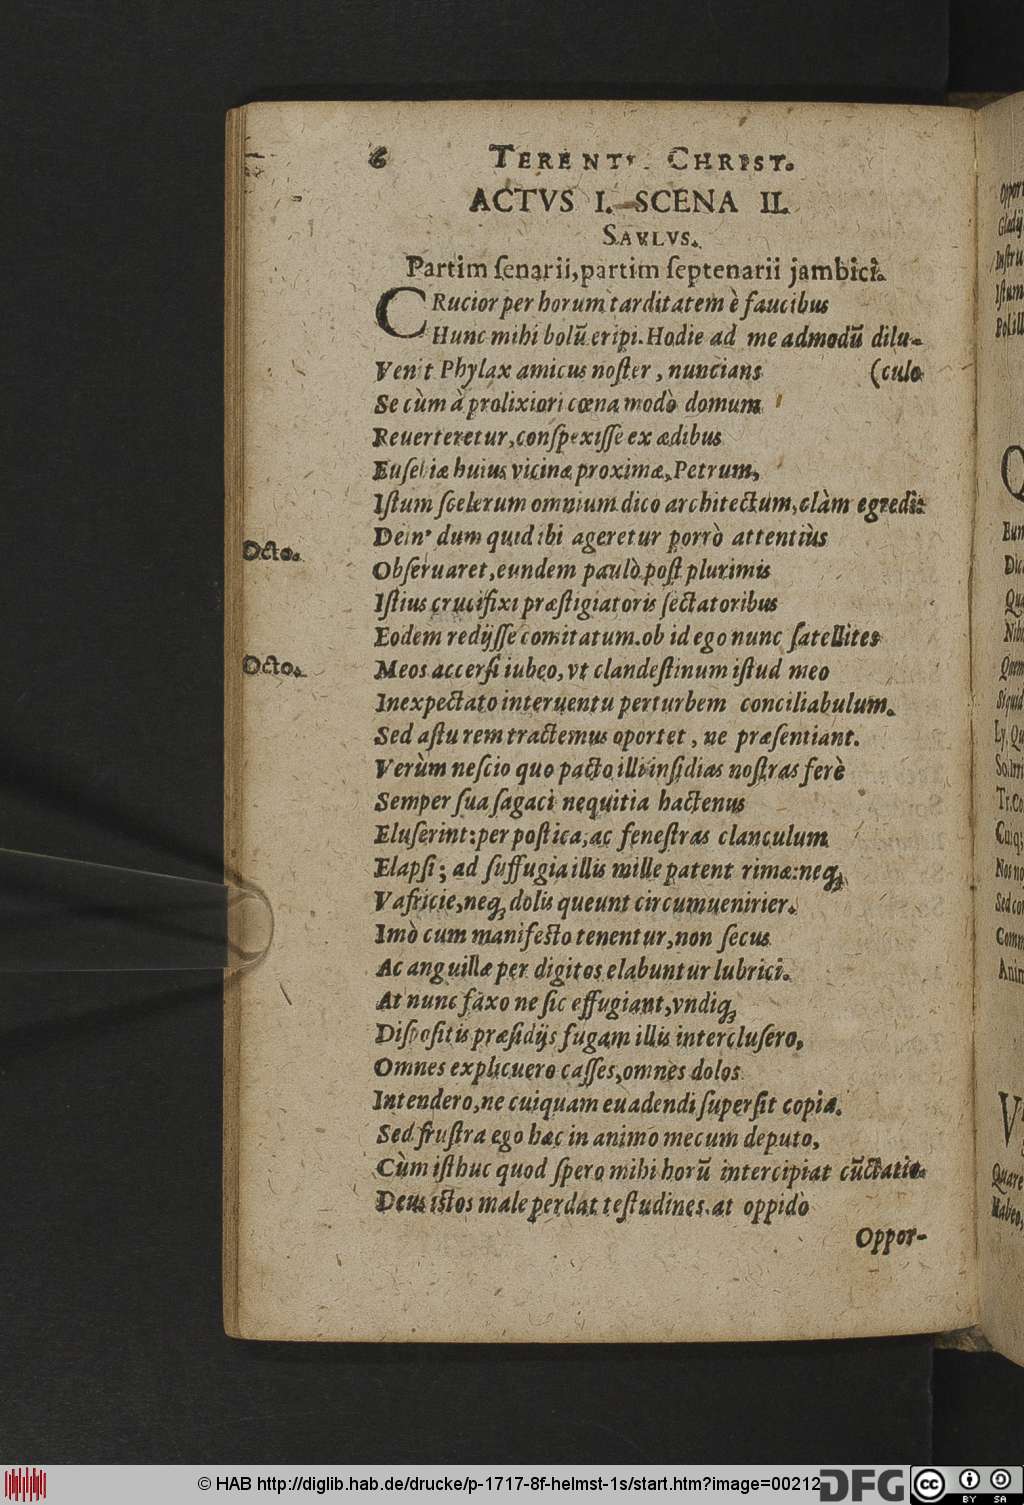 6 TERENT. CHRIST.
ACTVS I. SCENA II.
SAVLVS.
Partim ſenarii, partim ſeptenarii jambici.
CRucior per horum tarditatem è faucibus
Hunc mihi bolū eripi. Hodie ad me admodū dilu-
Venit Phylax amicus noſter, nuncians (culo
Se cùm à prolixiori cœna modò domum
Reuerteretur, conſpexiſſe ex ædibus
Euſebiæ huius vicinæ proximæ, Petrum,
Iſtum ſcelerum omnium dico architectum, clàm egredi:
Dein' dum quid ibi ageretur porrò attentiùs
Octo.
Obſeruaret, eundem paulò poſt plurimis
Iſtius crucifixi præſtigiatoris ſectatoribus
Eodem redijſſe comitatum. ob id ego nunc ſatellites
Octo.
Meos accerſi iubeo, vt clandeſtinum iſtud meo
Inexpectato interuentu perturbem conciliabulum.
Sed aſtu rem tractemus oportet, ne præſentiant.
Verùm neſcio quo pacto illi inſidias noſtras ferè
Semper ſua ſagaci nequitia hactenus
Eluſerint: per poſtica, ac feneſtras clanculum
Elapſi; ad ſuffugia illis mille patent rimæ: neq́;
Vafricie, neq; dolis queunt circumuenirier.
Imò cum manifeſto tenentur, non ſecus
Ac anguillæ per digitos elabuntur lubrici.
At nunc faxo ne ſic effugiant, vndiq;
Diſpoſitis præſidijs fugam illis intercluſero,
Omnes explicuero caſſes, omnes dolos
Intendero, ne cuiquam euadendi ſuperſit copia.
Sed fruſtra ego hæc in animo mecum deputo,
Cùm iſthuc quod ſpero mihi horū intercipiat cūctatio.
Deus iſtos male perdat teſtudines. at oppidò
Oppor-
© HAB http://diglib.hab.de/drucke/p-1717-8f-helmst-1s/start.htm?image=00212
DFG
cc BY SA